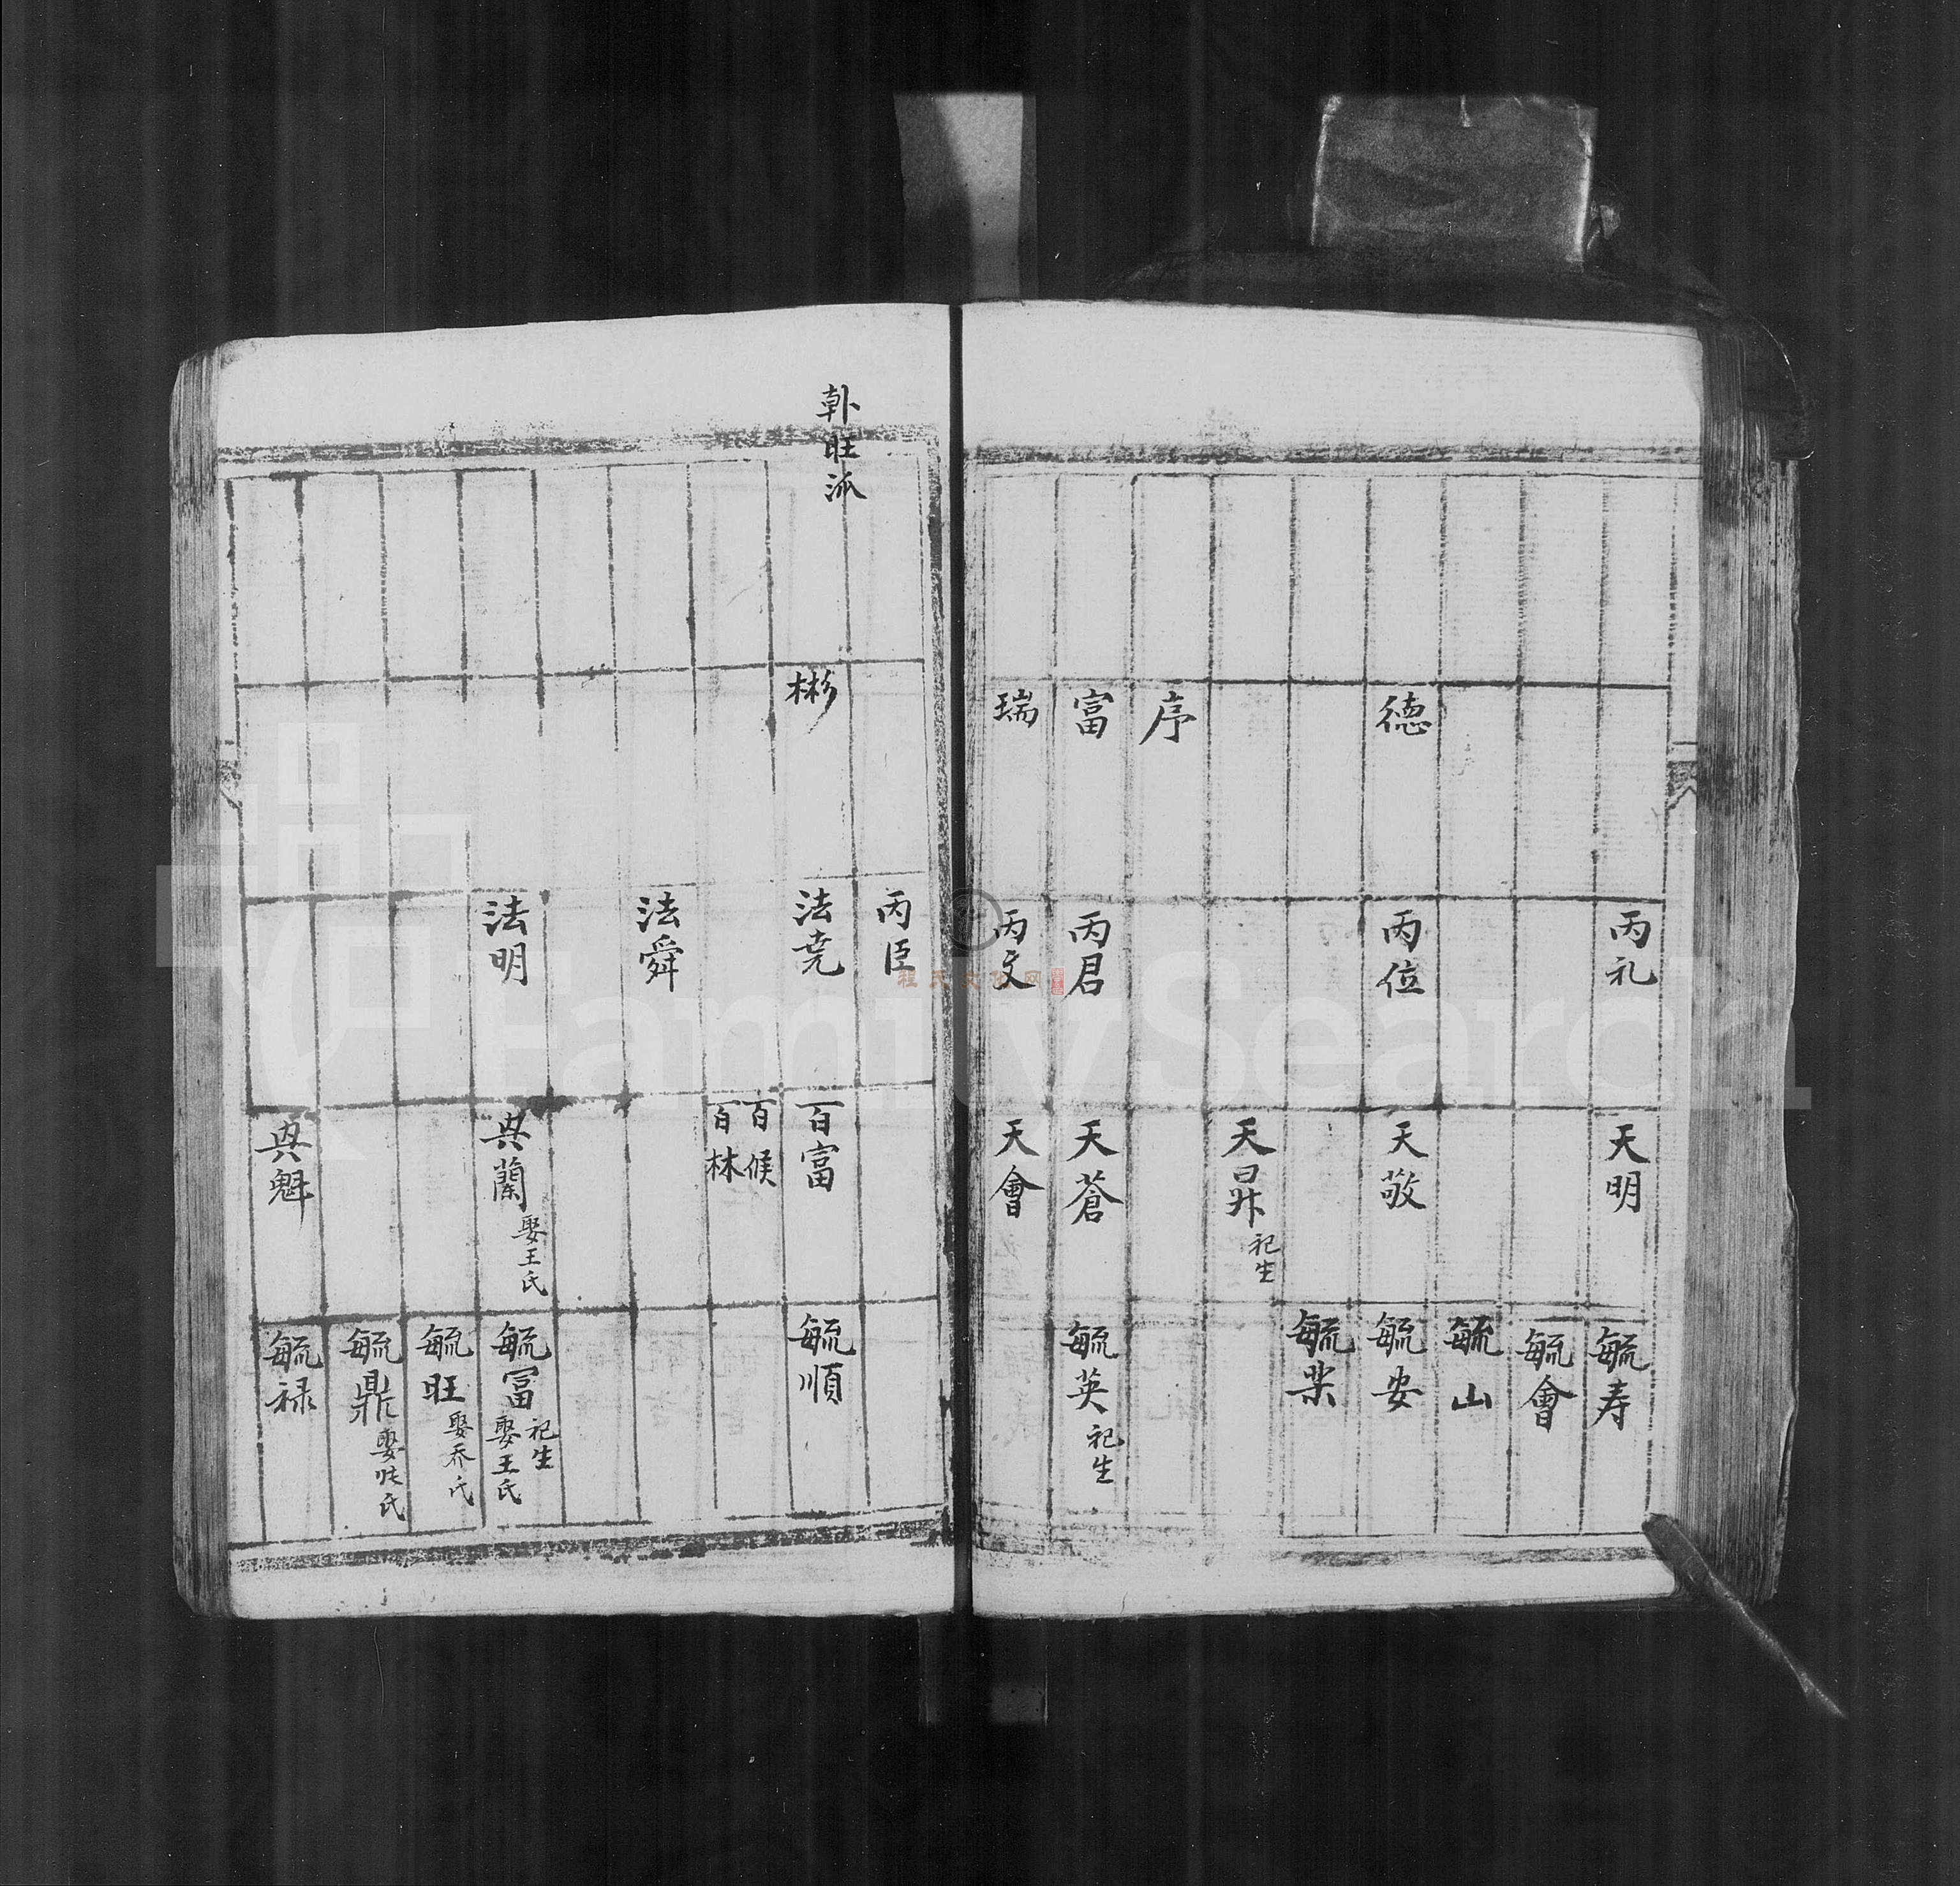 丙礼
天明
毓寿
毓會
毓山
德
丙位
天敬
毓安
毓業
天昇 祀生
序
富
丙君
天蒼
毓英 祀生
瑞
丙文
天會
丙臣
旺派
彬
法堯
百富
毓順
百候
百林
法舜
法明
興蘭 娶王氏
毓冨 祀生
娶王氏
毓旺 娶乔氏
毓鼎 娶 氏
興魁
毓禄
程氏文化网
FamilySearch